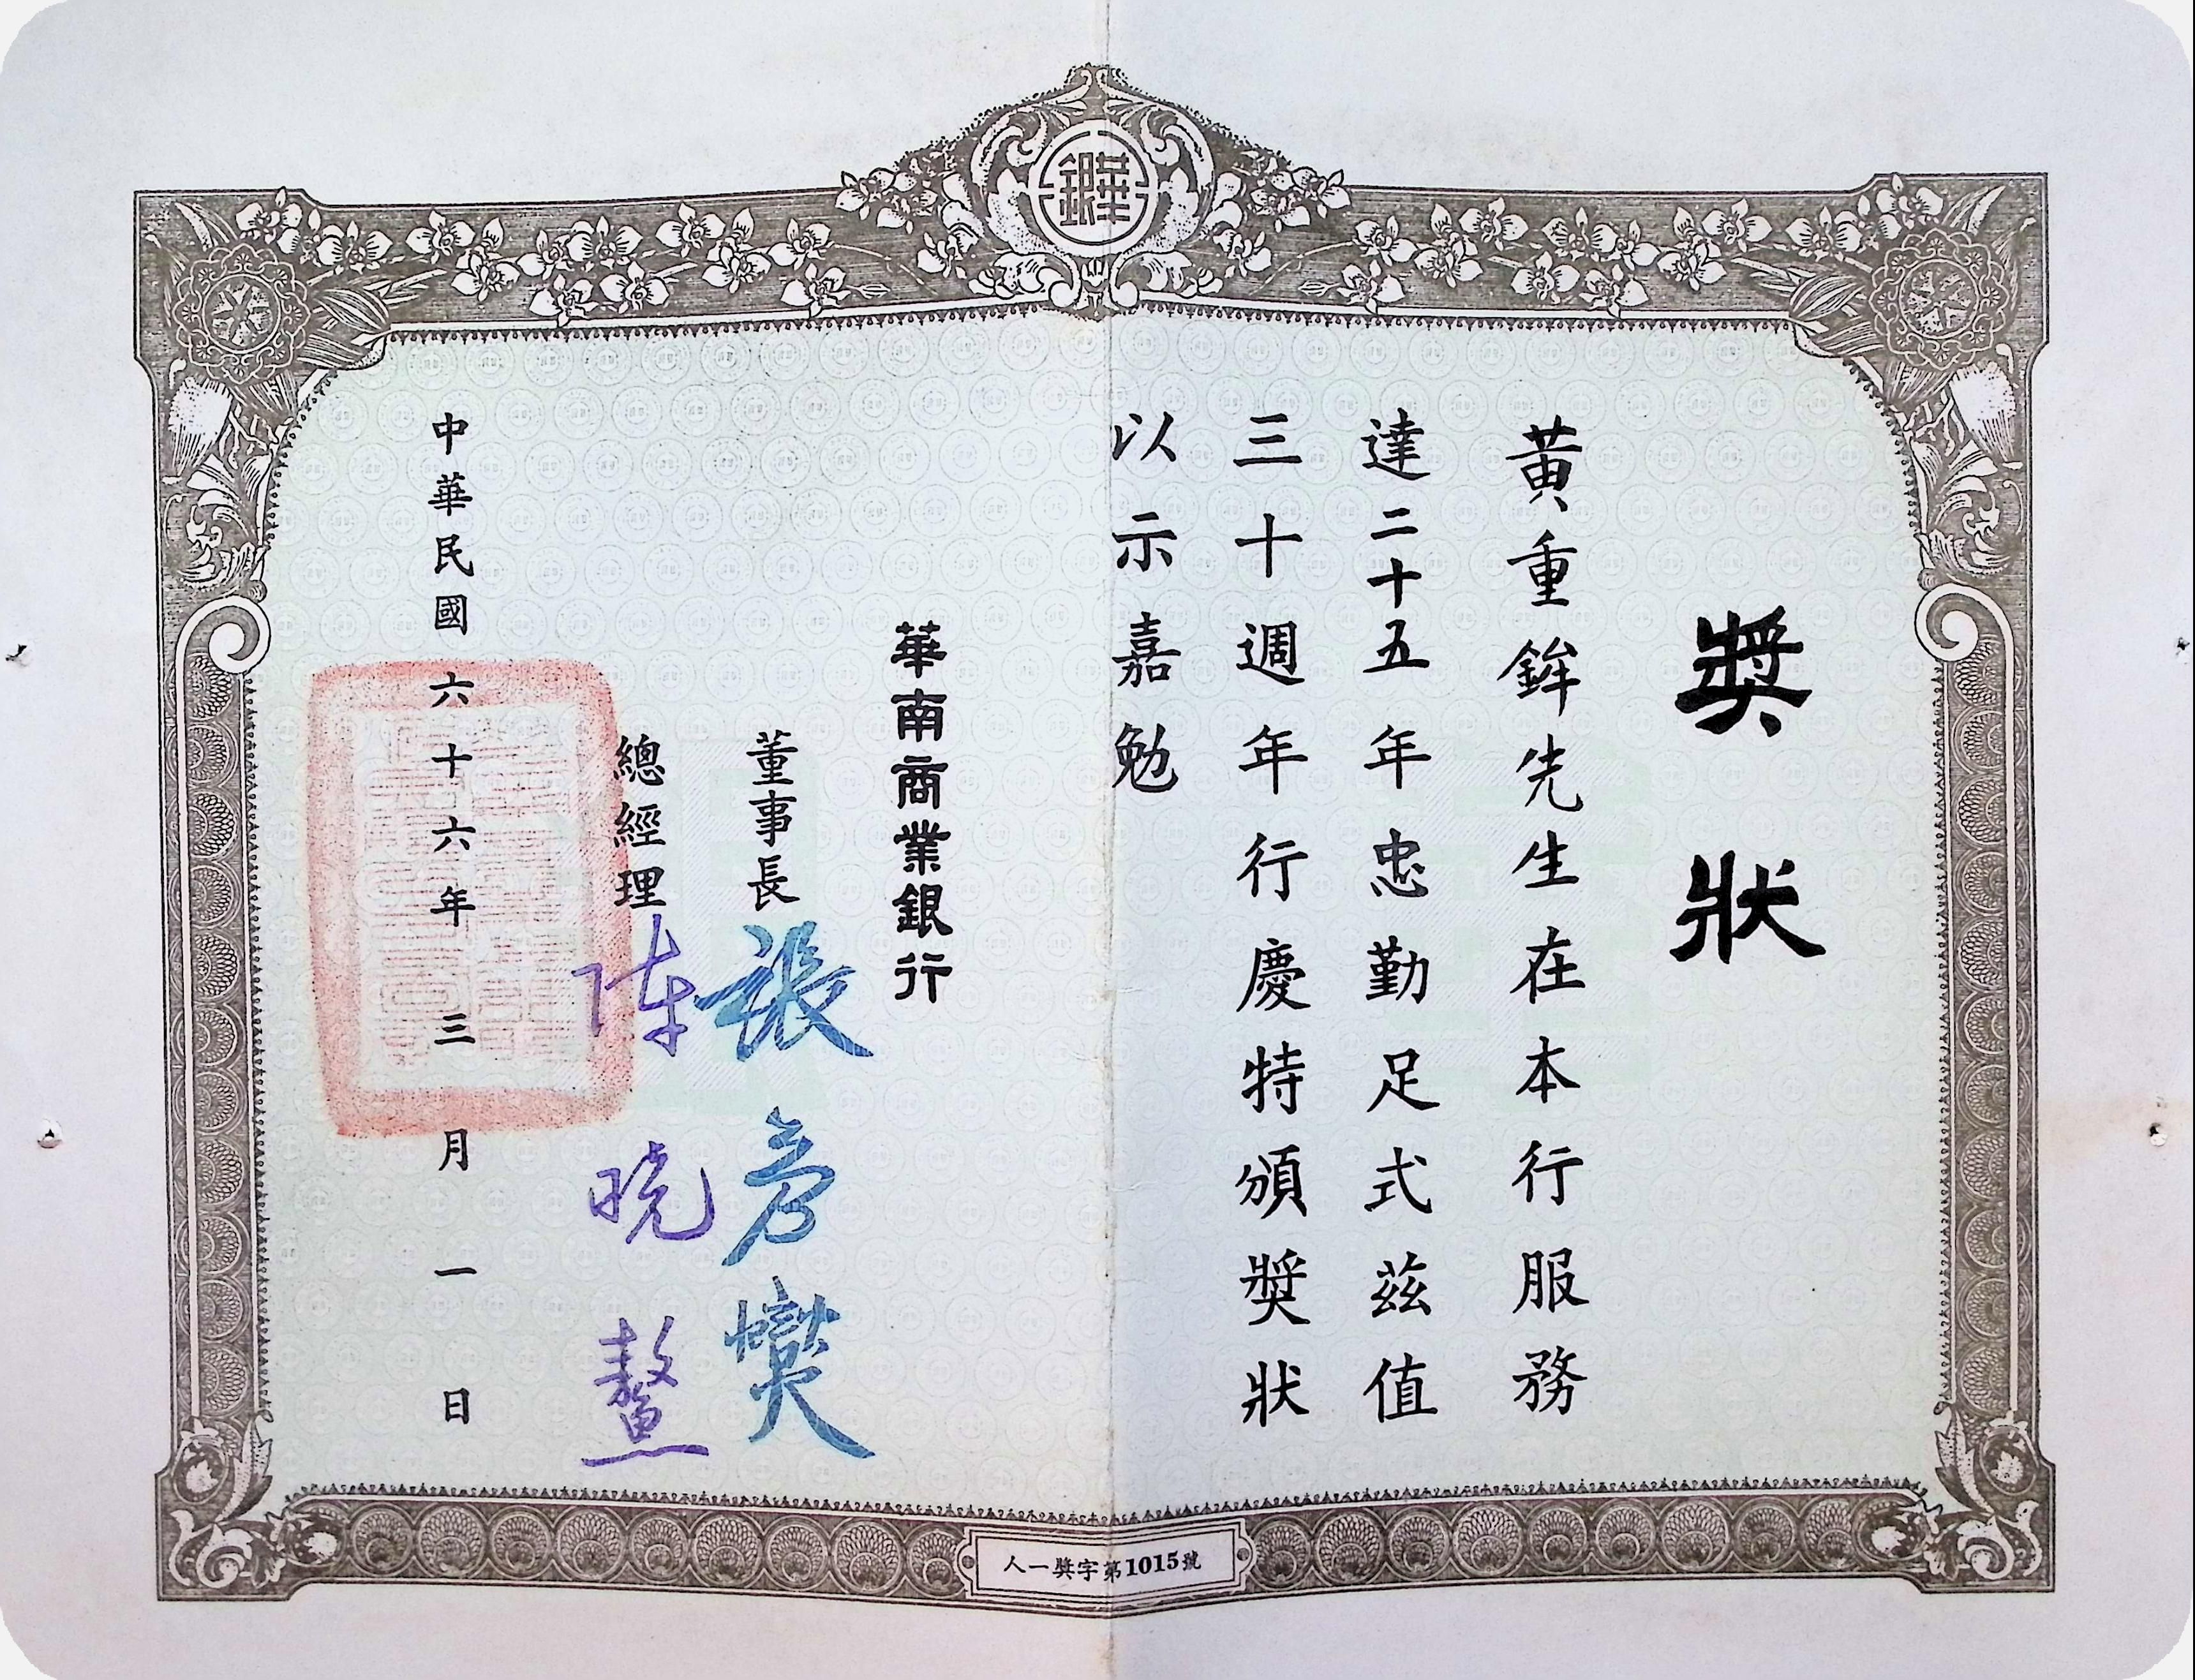 華銀
獎狀
黃重鉾先生在本行服務
達二十五年忠勤足式茲值
三十週年行慶特頒獎狀
以示嘉勉
華南商業銀行
董事長
總經理 陳曉鰲
中華民國六十六年三月一日
人一獎字第1015號